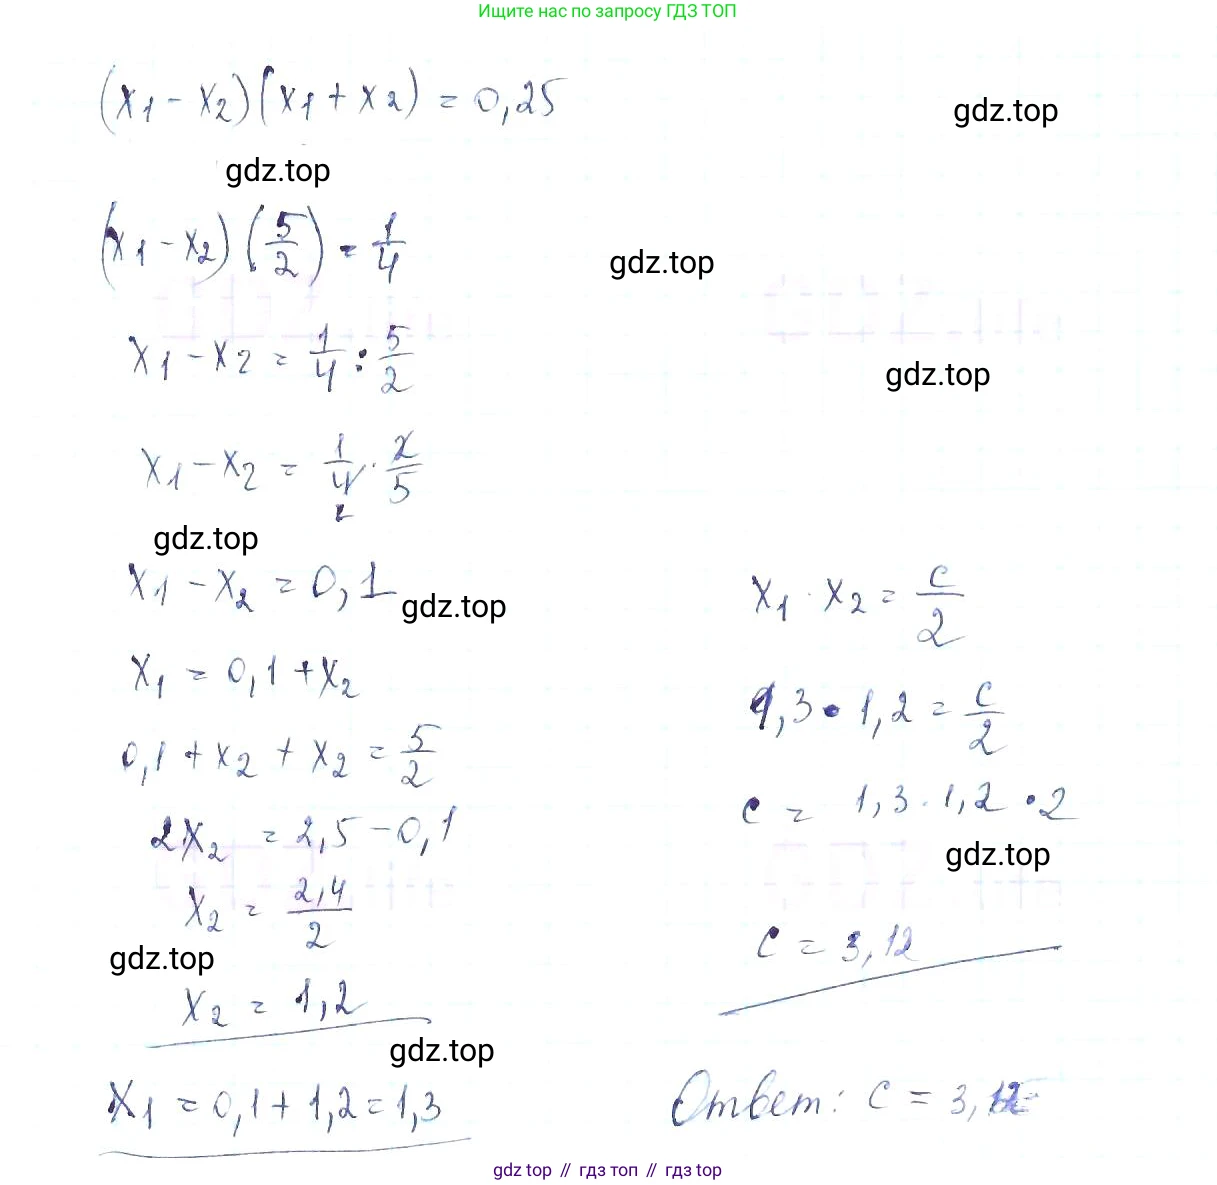 Ищите нас по запросу ГДЗ ТОП
(x₁ - x₂)(x₁ + x₂) = 0,25
gdz.top
gdz.top
(x₁ - x₂)(5/2) = 1/4
gdz.top
x₁ - x₂ = 1/4 : 5/2
gdz.top
x₁ - x₂ = 1/4 · 2/5
2
gdz.top
x₁ - x₂ = 0,1
gdz.top
x₁ = 0,1 + x₂
0,1 + x₂ + x₂ = 5/2
2x₂ = 2,5 - 0,1
x₂ = 2,4/2
gdz.top
x₂ = 1,2
gdz.top
x₁ = 0,1 + 1,2 = 1,3
x₁ · x₂ = c/2
1,3 · 1,2 = c/2
c = 1,3 · 1,2 · 2
gdz.top
c = 3,12
Ответ: c = 3,12
gdz top // гдз топ // гдз top